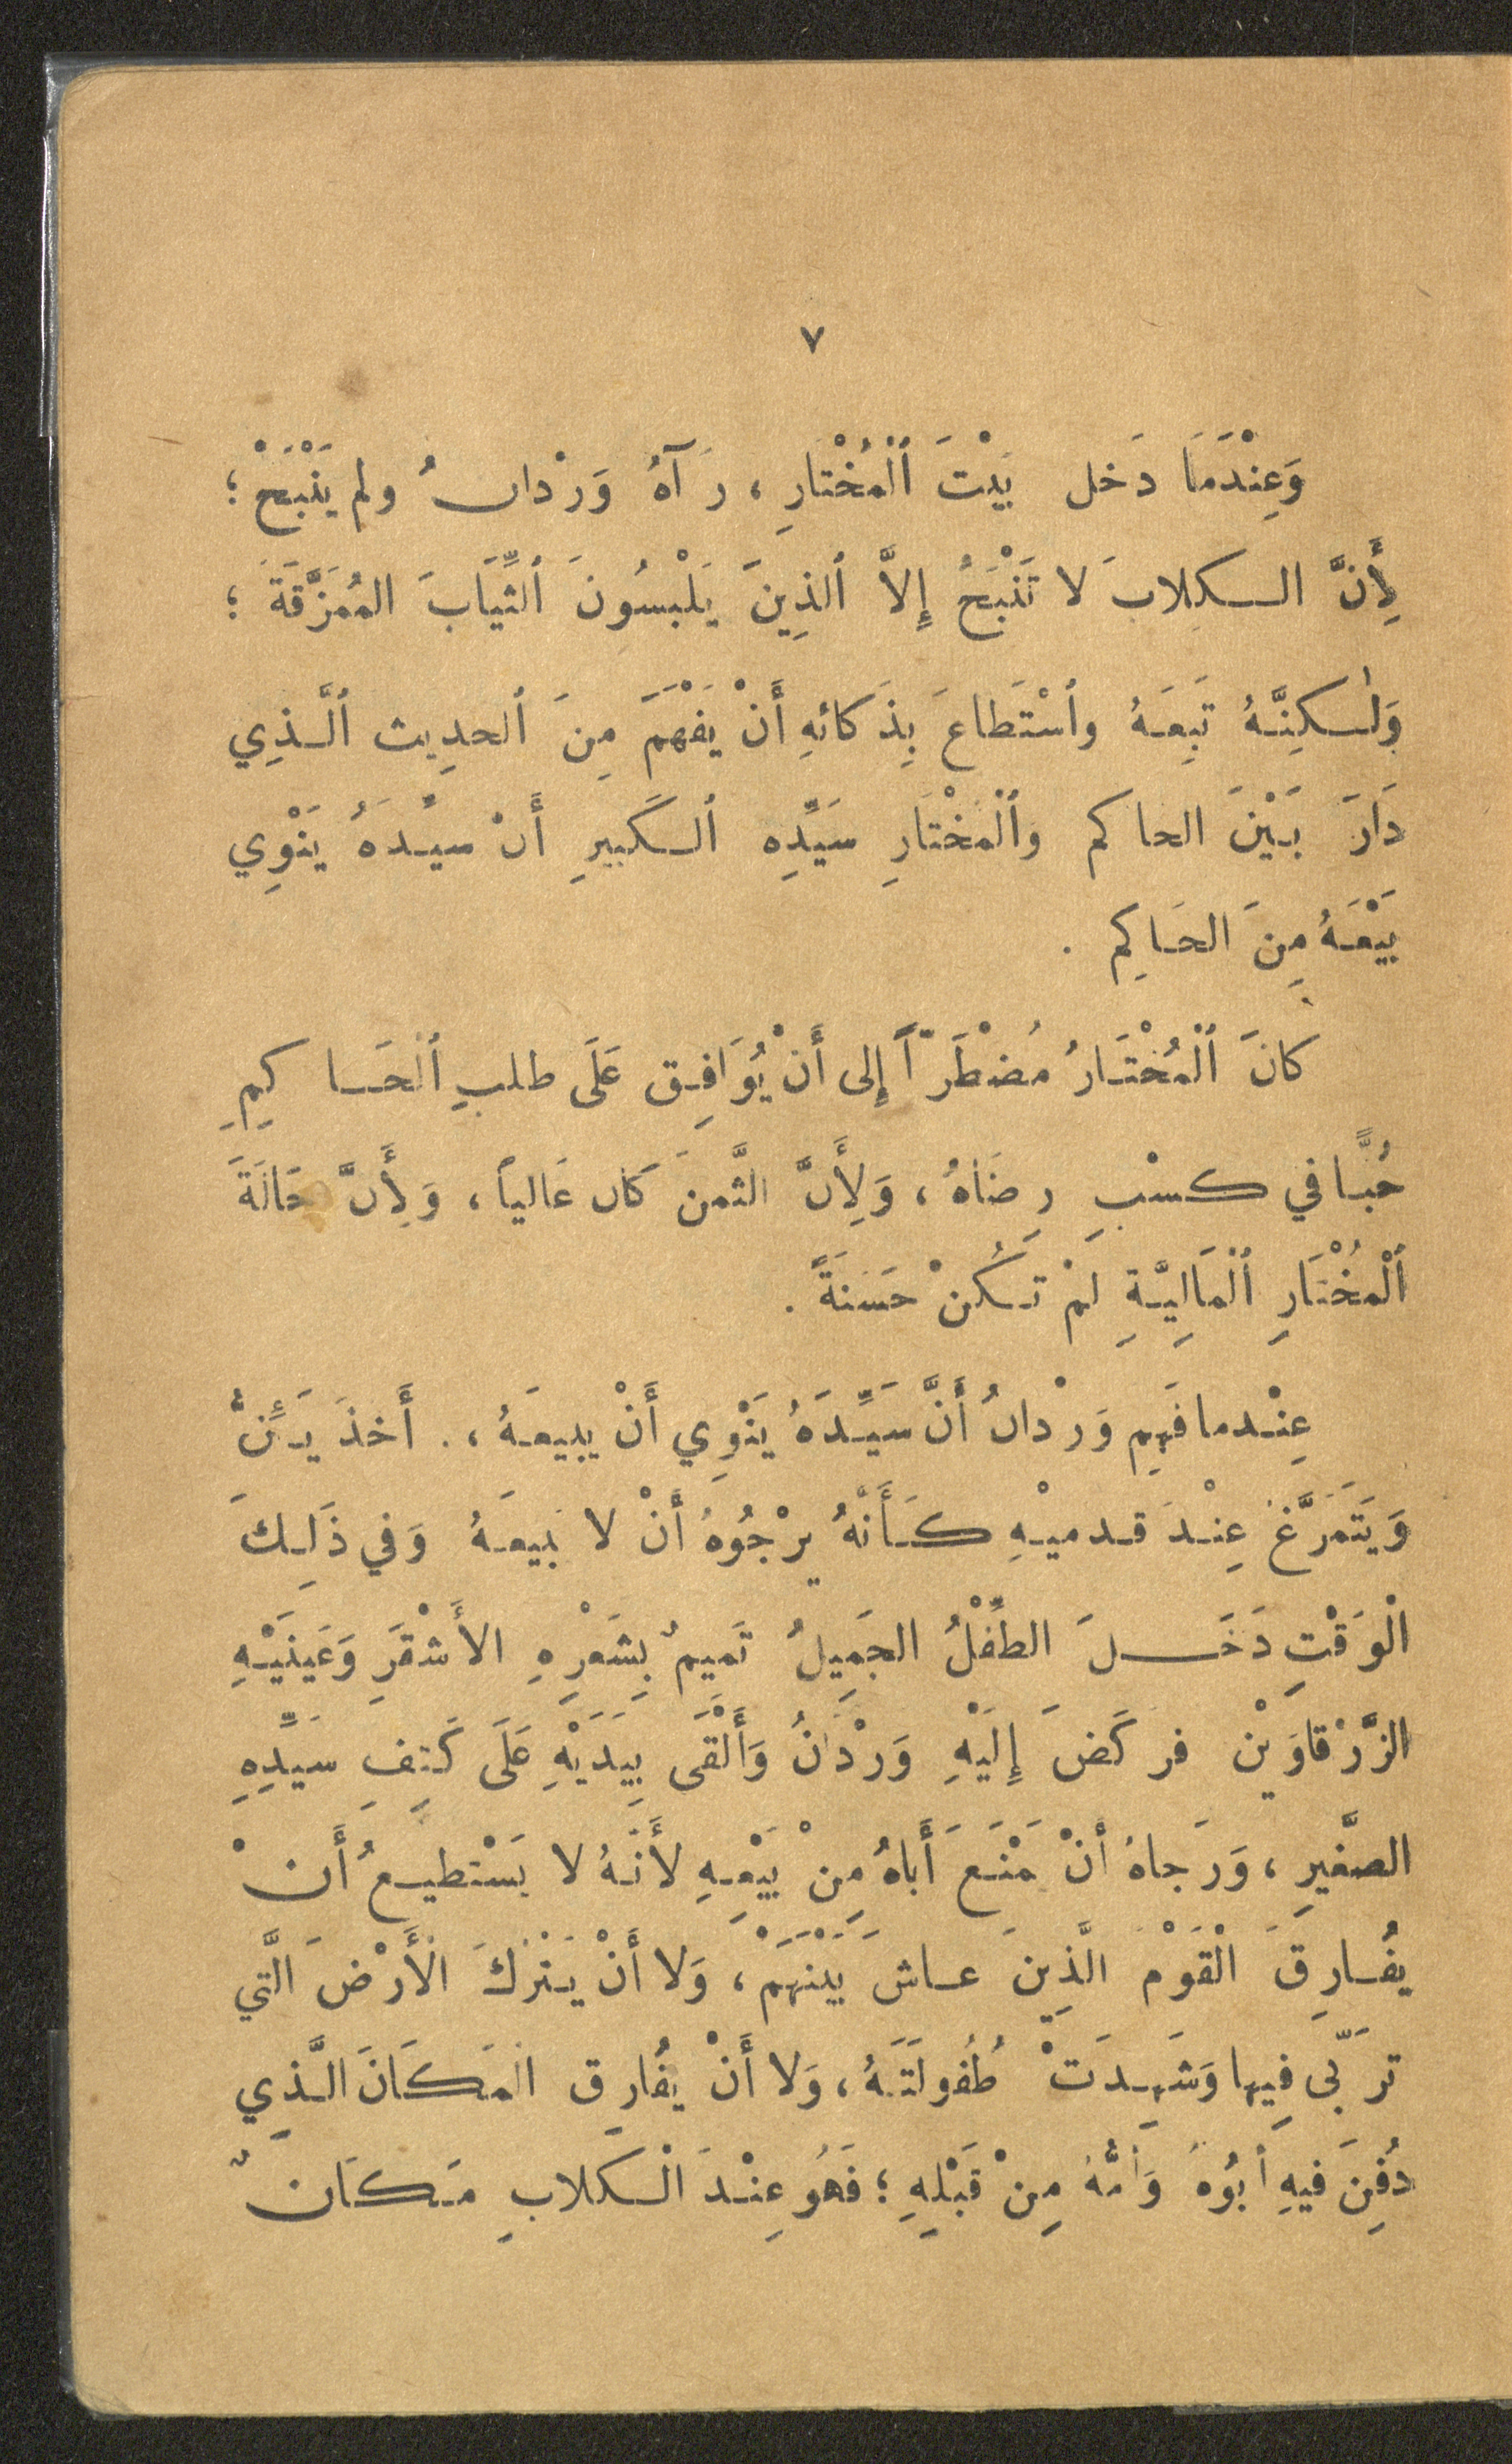 ٧
وَعِنْدَمَا دَخل بَيْتَ ٱلْمُخْتَارِ ، رَآهُ وَرْدانُ ولم يَنْبَحْ ؛
لِأَنَّ الكِلابَ لا تَنْبَحُ إِلاَّ ٱلذِينَ يَلْبسُونَ ٱلثِّيَابَ المُمَزَّقَةَ ؛
وَلٰكِنَّهُ تَبِعَهُ وٱسْتَطَاعَ بِذَكائهِ أَنْ يَفْهَمَ مِنَ ٱلحدِيث ٱلَّذِي
دَارَ بَيْنَ الحاكم وٱلْمُخْتَارِ سَيِّدِه ٱلكَبيرِ أَن سيِّدَهُ يَنْوِي
بَيْعَهُ مِنَ الحَاكِم .
كانَ ٱلْمُخْتَارُ مُضْطَرّاً إِلى أَنْ يُوَافِق عَلَى طلبِ ٱلحَاكِمِ
حُبًّا في كسْبِ رِضَاهُ ، وَلِأَنَّ الثَّمنَ كَان غَالياً ، وَلِأَنَّ حَالَةَ
ٱلْمُخْتَارِ ٱلْمَالِيَّةِ لمْ تَكُنْ حَسَنَةً .
عِنْدما فَهِم وَرْدانُ أَنَّ سَيِّدَهُ يَنْوِي أَنْ يبيعَهُ ، . أَخذَ يَئِنُّ
وَيَتَمَرَّغُ عِنْدَ قدميْهِ كَأَنَّهُ يرْجُوهُ أَنْ لا يَبيعَهُ وَفي ذَلِكَ
الْوَقْتِ دَخَلَ الطِّفْلُ الجَمِيلُ تَميمٌ بِشَعْرِهِ الأَشْقَرِ وَعَينَيْهِ
الزَّرْقاوَيْن فرَكَضَ إِلَيْهِ وَرْدَانُ وَأَلْقَى بِيَدَيْهِ عَلَى كَتِفِ سَيِّدِهِ
الصَّغيرِ ، وَرَجاهُ أَنْ يَمْنَعَ أَباهُ مِنْ بَيْعِهِ لأَنَهُ لا يَسْتطيعُ أَنْ
يفُارِقَ الْقَوْمَ الَّذِينَ عاشَ بَيْنَهَمْ ، وَلا أَنْ يَتْرُكَ الْأَرْضَ الَّتي
ترَبّى فِيها وَشَهِدَتْ طُفُولَتَهُ ، وَلا أَنْ يفُارِق المَكَانَ الَّذِي
دُفِنَ فيهِ أبُوهُ وَأُمُّهُ مِنْ قَبْلِهِ ؛ فَهُوَ عِنْدَ الْكلابِ مَكَانٌ